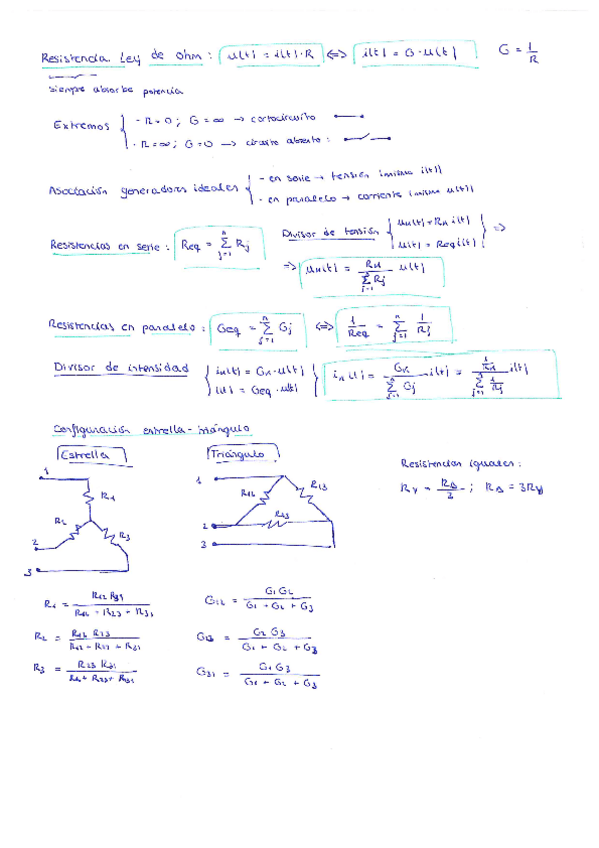 Resistencia Ley de ohm: u(t) = i(t)·R <=> i(t) = G·u(t) G = 1/R
siempre absorbe potencia
Extremos { - R=0; G=∞ → cortocircuito
- R=∞; G=0 → circuito abierto:
Asociación generadores ideales { - en serie → tensión (misma i(t))
- en paralelo → corriente (misma u(t))
Resistencias en serie: Req = Σ_{j=1}^{n} Rj Divisor de tensión { uk(t) = Rk i(t)
u(t) = Req i(t) } =>
=> uk(t) = Rk / Σ_{j=1}^{n} Rj u(t)
Resistencias en paralelo: Geq = Σ_{j=1}^{n} Gj <=> 1/Req = Σ_{j=1}^{n} 1/Rj
Divisor de intensidad { ik(t) = Gk·u(t)
i(t) = Geq·u(t) } ik(t) = Gk / Σ_{j=1}^{n} Gj i(t) = 1/Rk / Σ_{j=1}^{n} 1/Rj i(t)
Configuración estrella-triángulo
Estrella Triángulo
Resistencias iguales:
RY = RΔ/3; RΔ = 3RY
1 R1
R2 R3
2
3
1 R12 R13
2 R23
3
R1 = R12 R31 / R12 + R23 + R31 G12 = G1 G2 / G1 + G2 + G3
R2 = R12 R23 / R12 + R23 + R31 = G2 G3 / G1 + G2 + G3
R3 = R23 R31 / R12 + R23 + R31 G31 = G1 G3 / G1 + G2 + G3